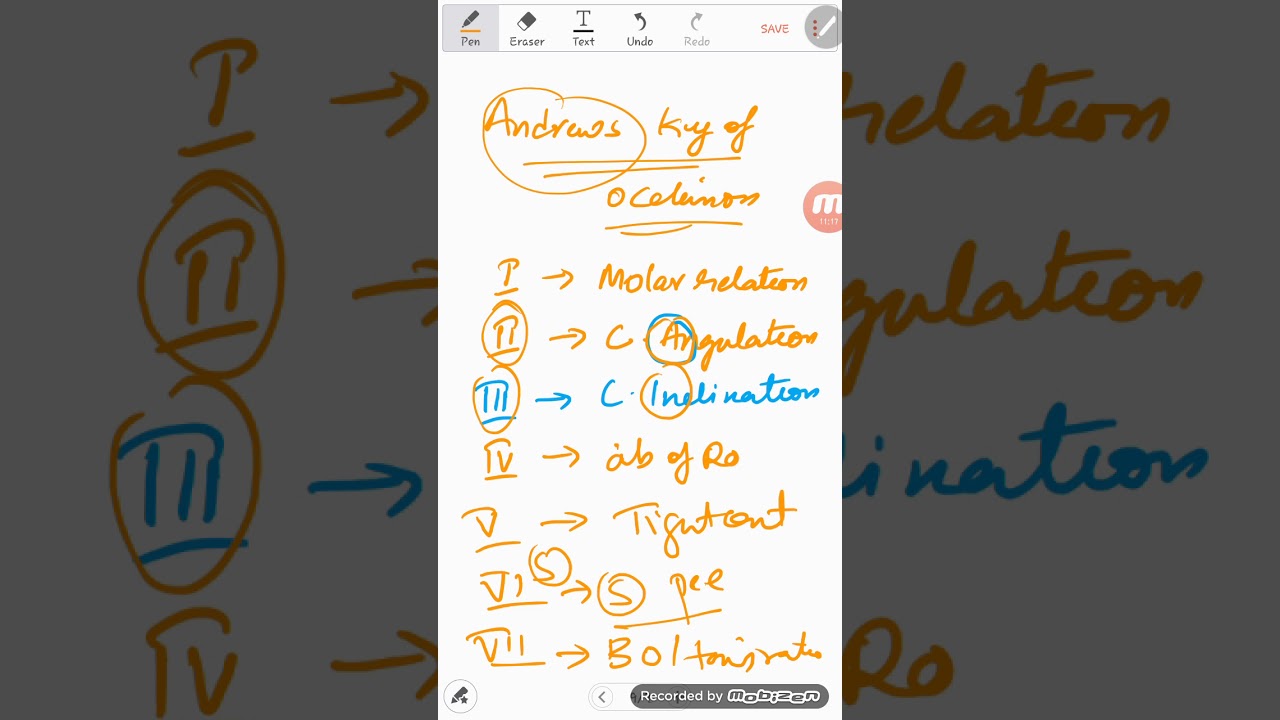 Pen Eraser Text Undo Redo SAVE
Andrews Key of
11:17
I → Molar relation
II → C. Angulation
III → C. Inclination
IV → ab of Ro
V → Tight cont
VI S → S pee
VII → Bolton's ratio
Recorded by mobizen